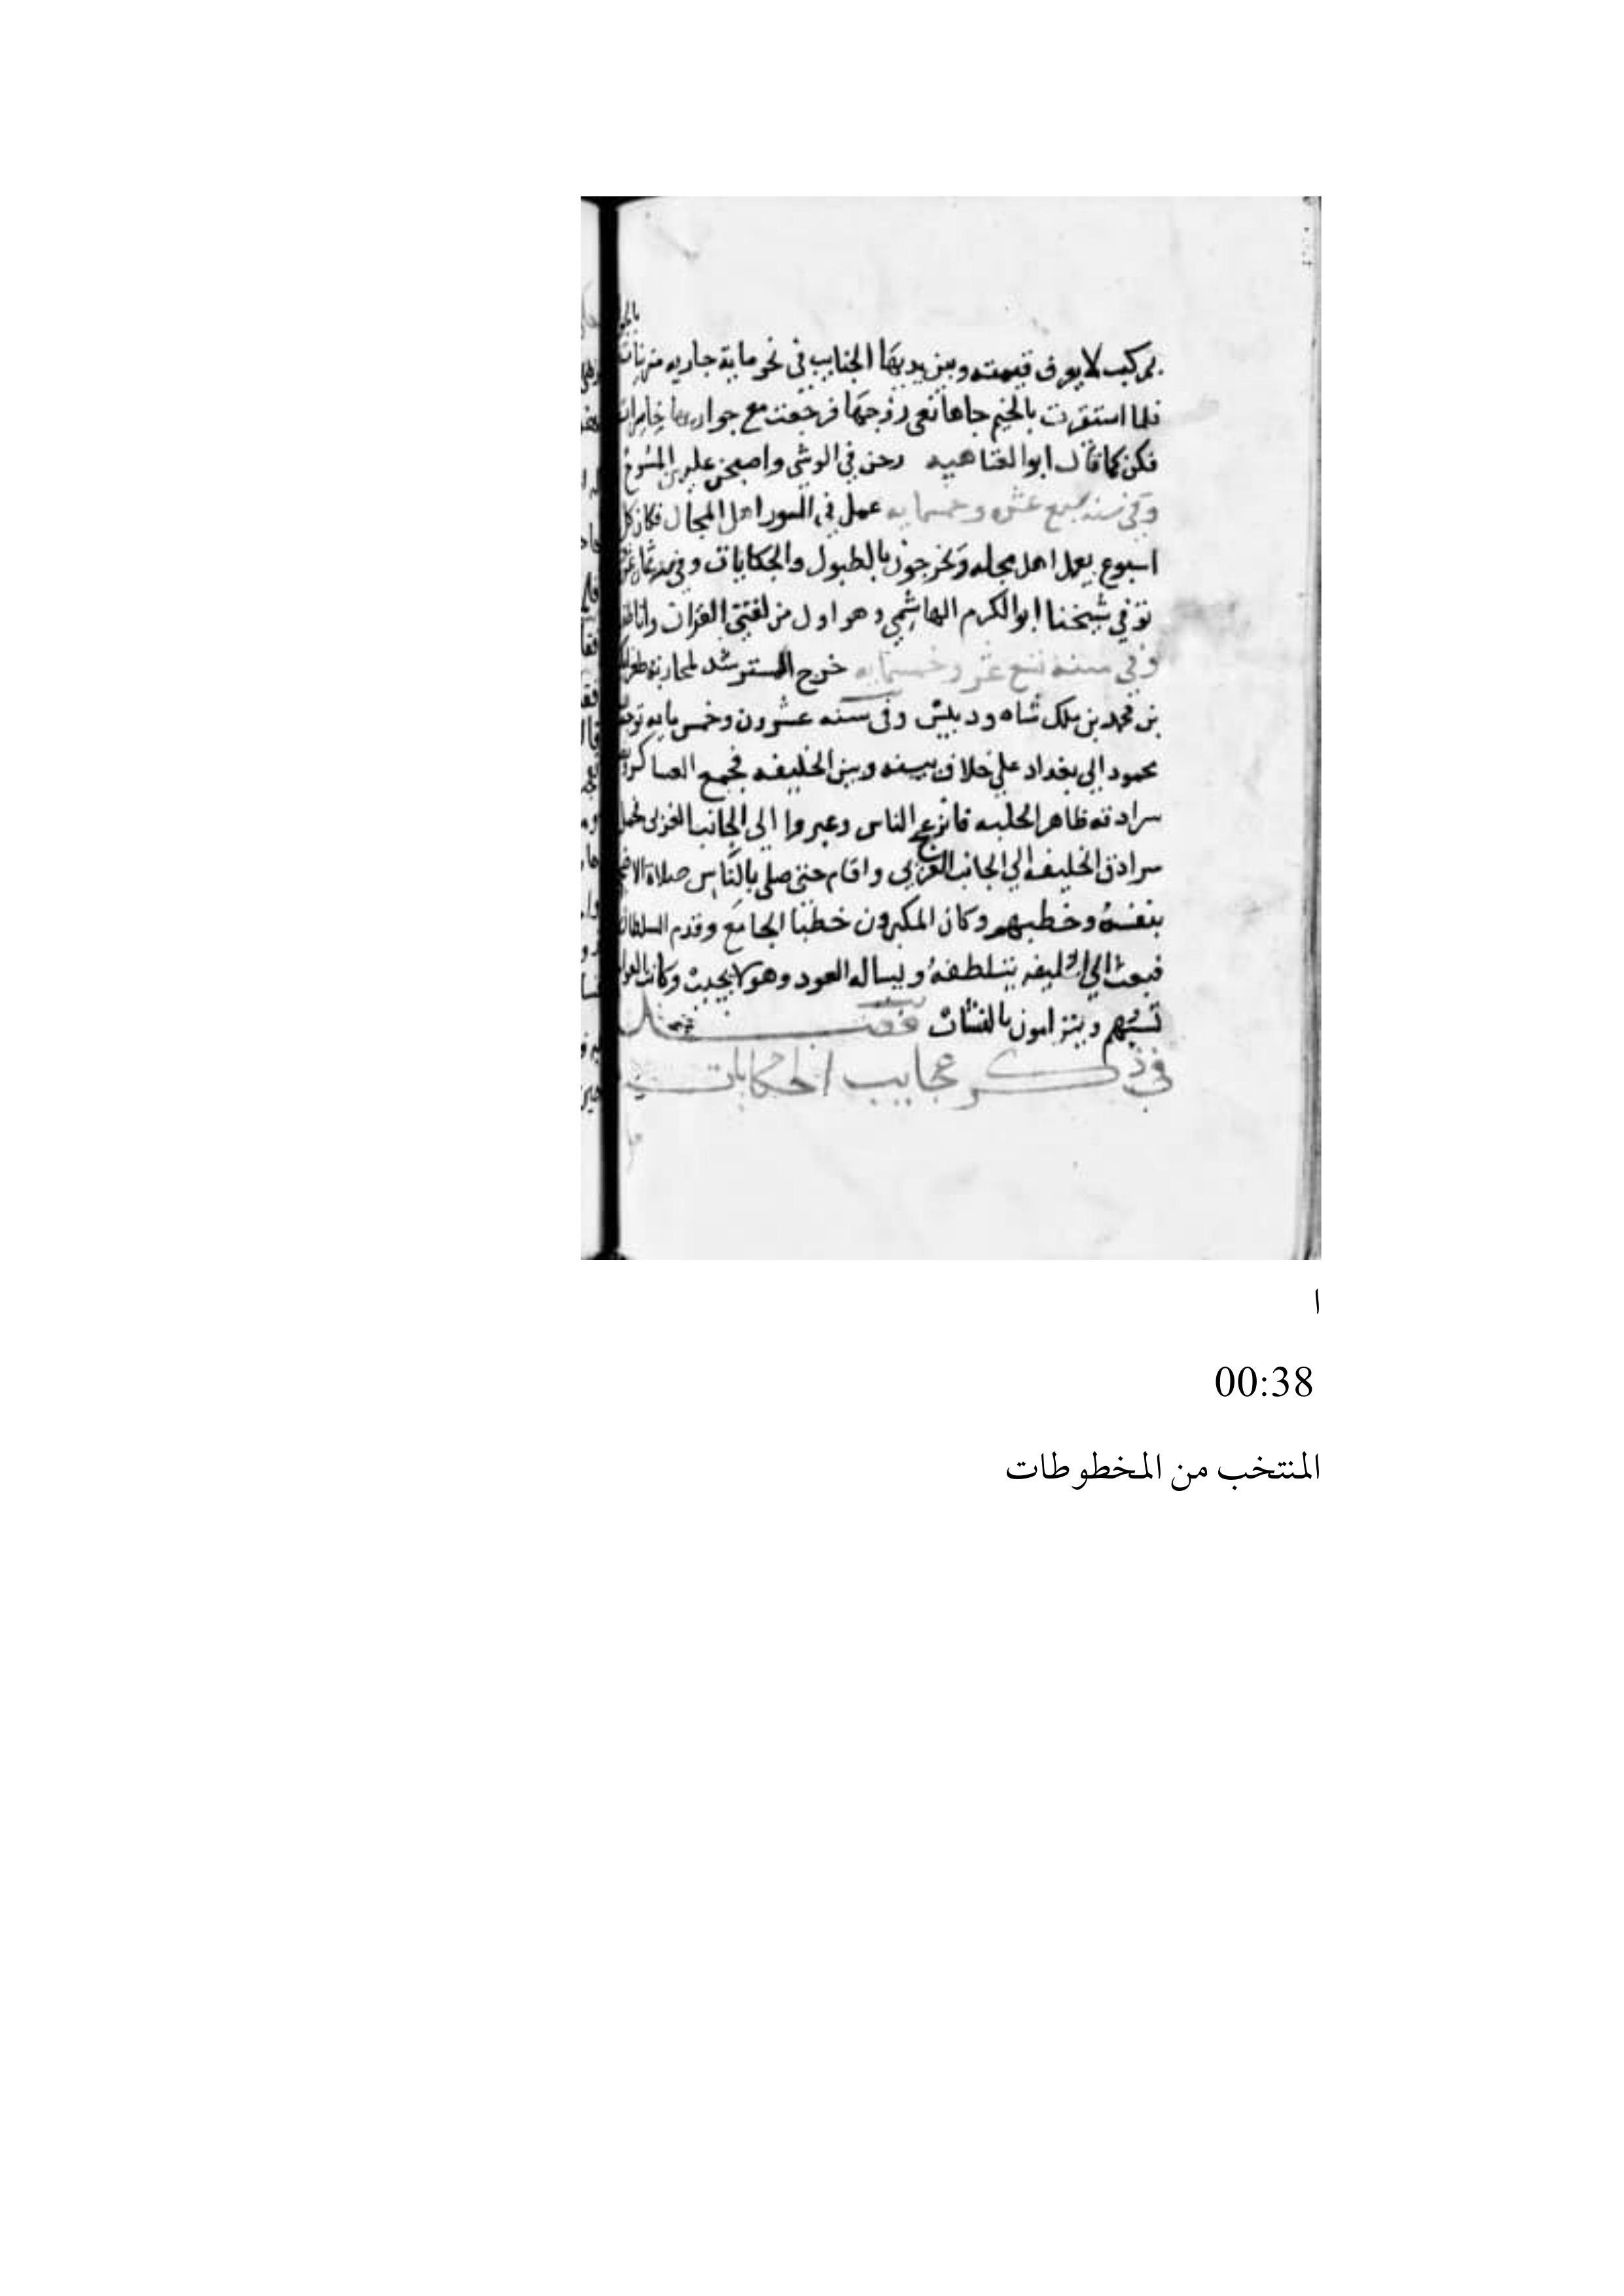 بمركب لا يعرف قيمته وبين يديها الجنايب في نحو ماية جاريه متزينات
فلما استقرت بالخيم جاها نعي زوجها فرجعت مع جواريها حاسرات
فكن كما قال ابو العتاهيه رحن في الوشي واصبحن عليهن المسوح
وفي سنه سبع عشره وخمسمايه عمل في السور اهل المحال فكان كل
اسبوع يعمل اهل محله ويخرجون بالطبول والحكايات وفي سنه ثمان عشره
توفي شيخنا ابو الكرم الهاشمي وهو اول من لقنني القران وانا طفل
وفي سنه تسع عشر وخمسمايه خرج المسترشد لمحاربه طغرلبك
بن محمد بن ملك شاه ودبيس وفي سنه عشرون وخمس مايه توجه
محمود الي بغداد علي خلاف بينه وبين الخليفه فجمع العساكر
سرادقه ظاهر الحلبه فانزعج الناس وعبروا الي الجانب الغربي فحمل
سرادق الخليفه الي الجانب الغربي واقام حتي صلي بالناس صلاة الاضحي
بنفسه وخطبهم وكان المكبرون خطبا الجامع وقدم السلطان
فبعث الي الخليفه يتلطفه ويساله العود وهو لا يجيب وكانت العوام
تسبهم ويترامون بالنشاب فصل
في ذكر عجايب الحكايات
ا
00:38
المنتخب من المخطوطات